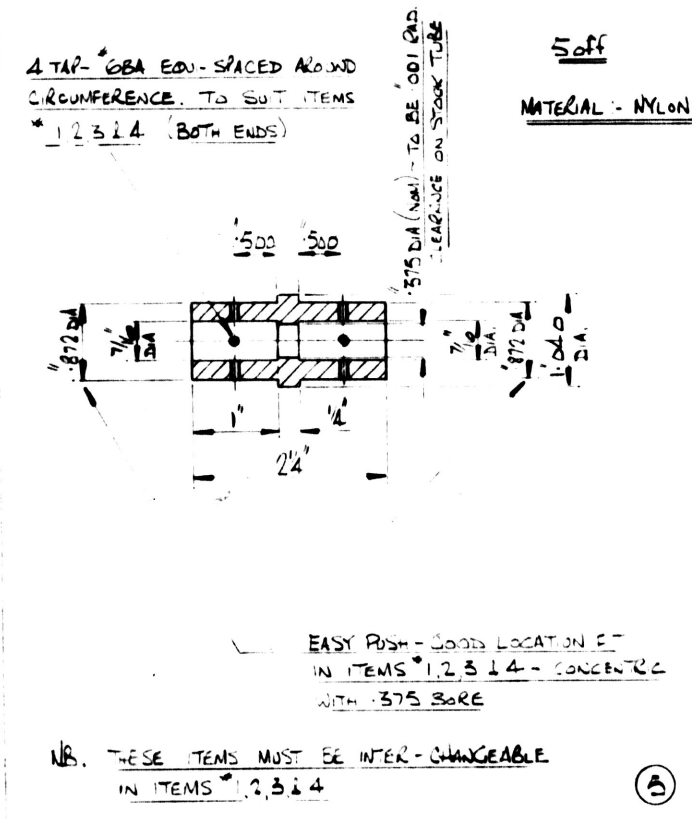 4 TAP- #6BA EQU-SPACED AROUND
CIRCUMFERENCE. TO SUIT ITEMS
# 1 2 3 & 4 (BOTH ENDS)
5 off
MATERIAL :- NYLON
".375 DIA (NOM) - TO BE ".001 RAD.
CLEARANCE ON STOCK TUBE
".500 ".500
".872 DIA
7/16" DIA
7/16" DIA.
".872 DIA
1".040 DIA.
1"
1/4"
2 1/4"
EASY PUSH - GOOD LOCATION FIT
IN ITEMS # 1,2,3 & 4 - CONCENTRIC
WITH .375 BORE
NB. THESE ITEMS MUST BE INTER-CHANGEABLE
IN ITEMS # 1,2,3 & 4
5